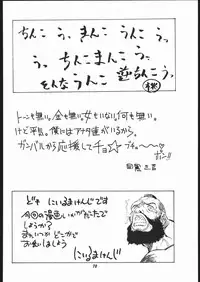 ちんこ う、まんこ うんこ う、
う、ちんこまんこ う、
そんなうんこ
トーンも無い。金も無い。女もいない。何も無い。
けど平気。僕にはアナタ達がいるから。
ガンバルから応援してチョ☆ ブチュ〜〜♡
ポン!!
ども にいるまけんじです
今回の漫画いかがだったで
しょうか?
またいつか どこかで
お会いしましょう
にいるまけんじ